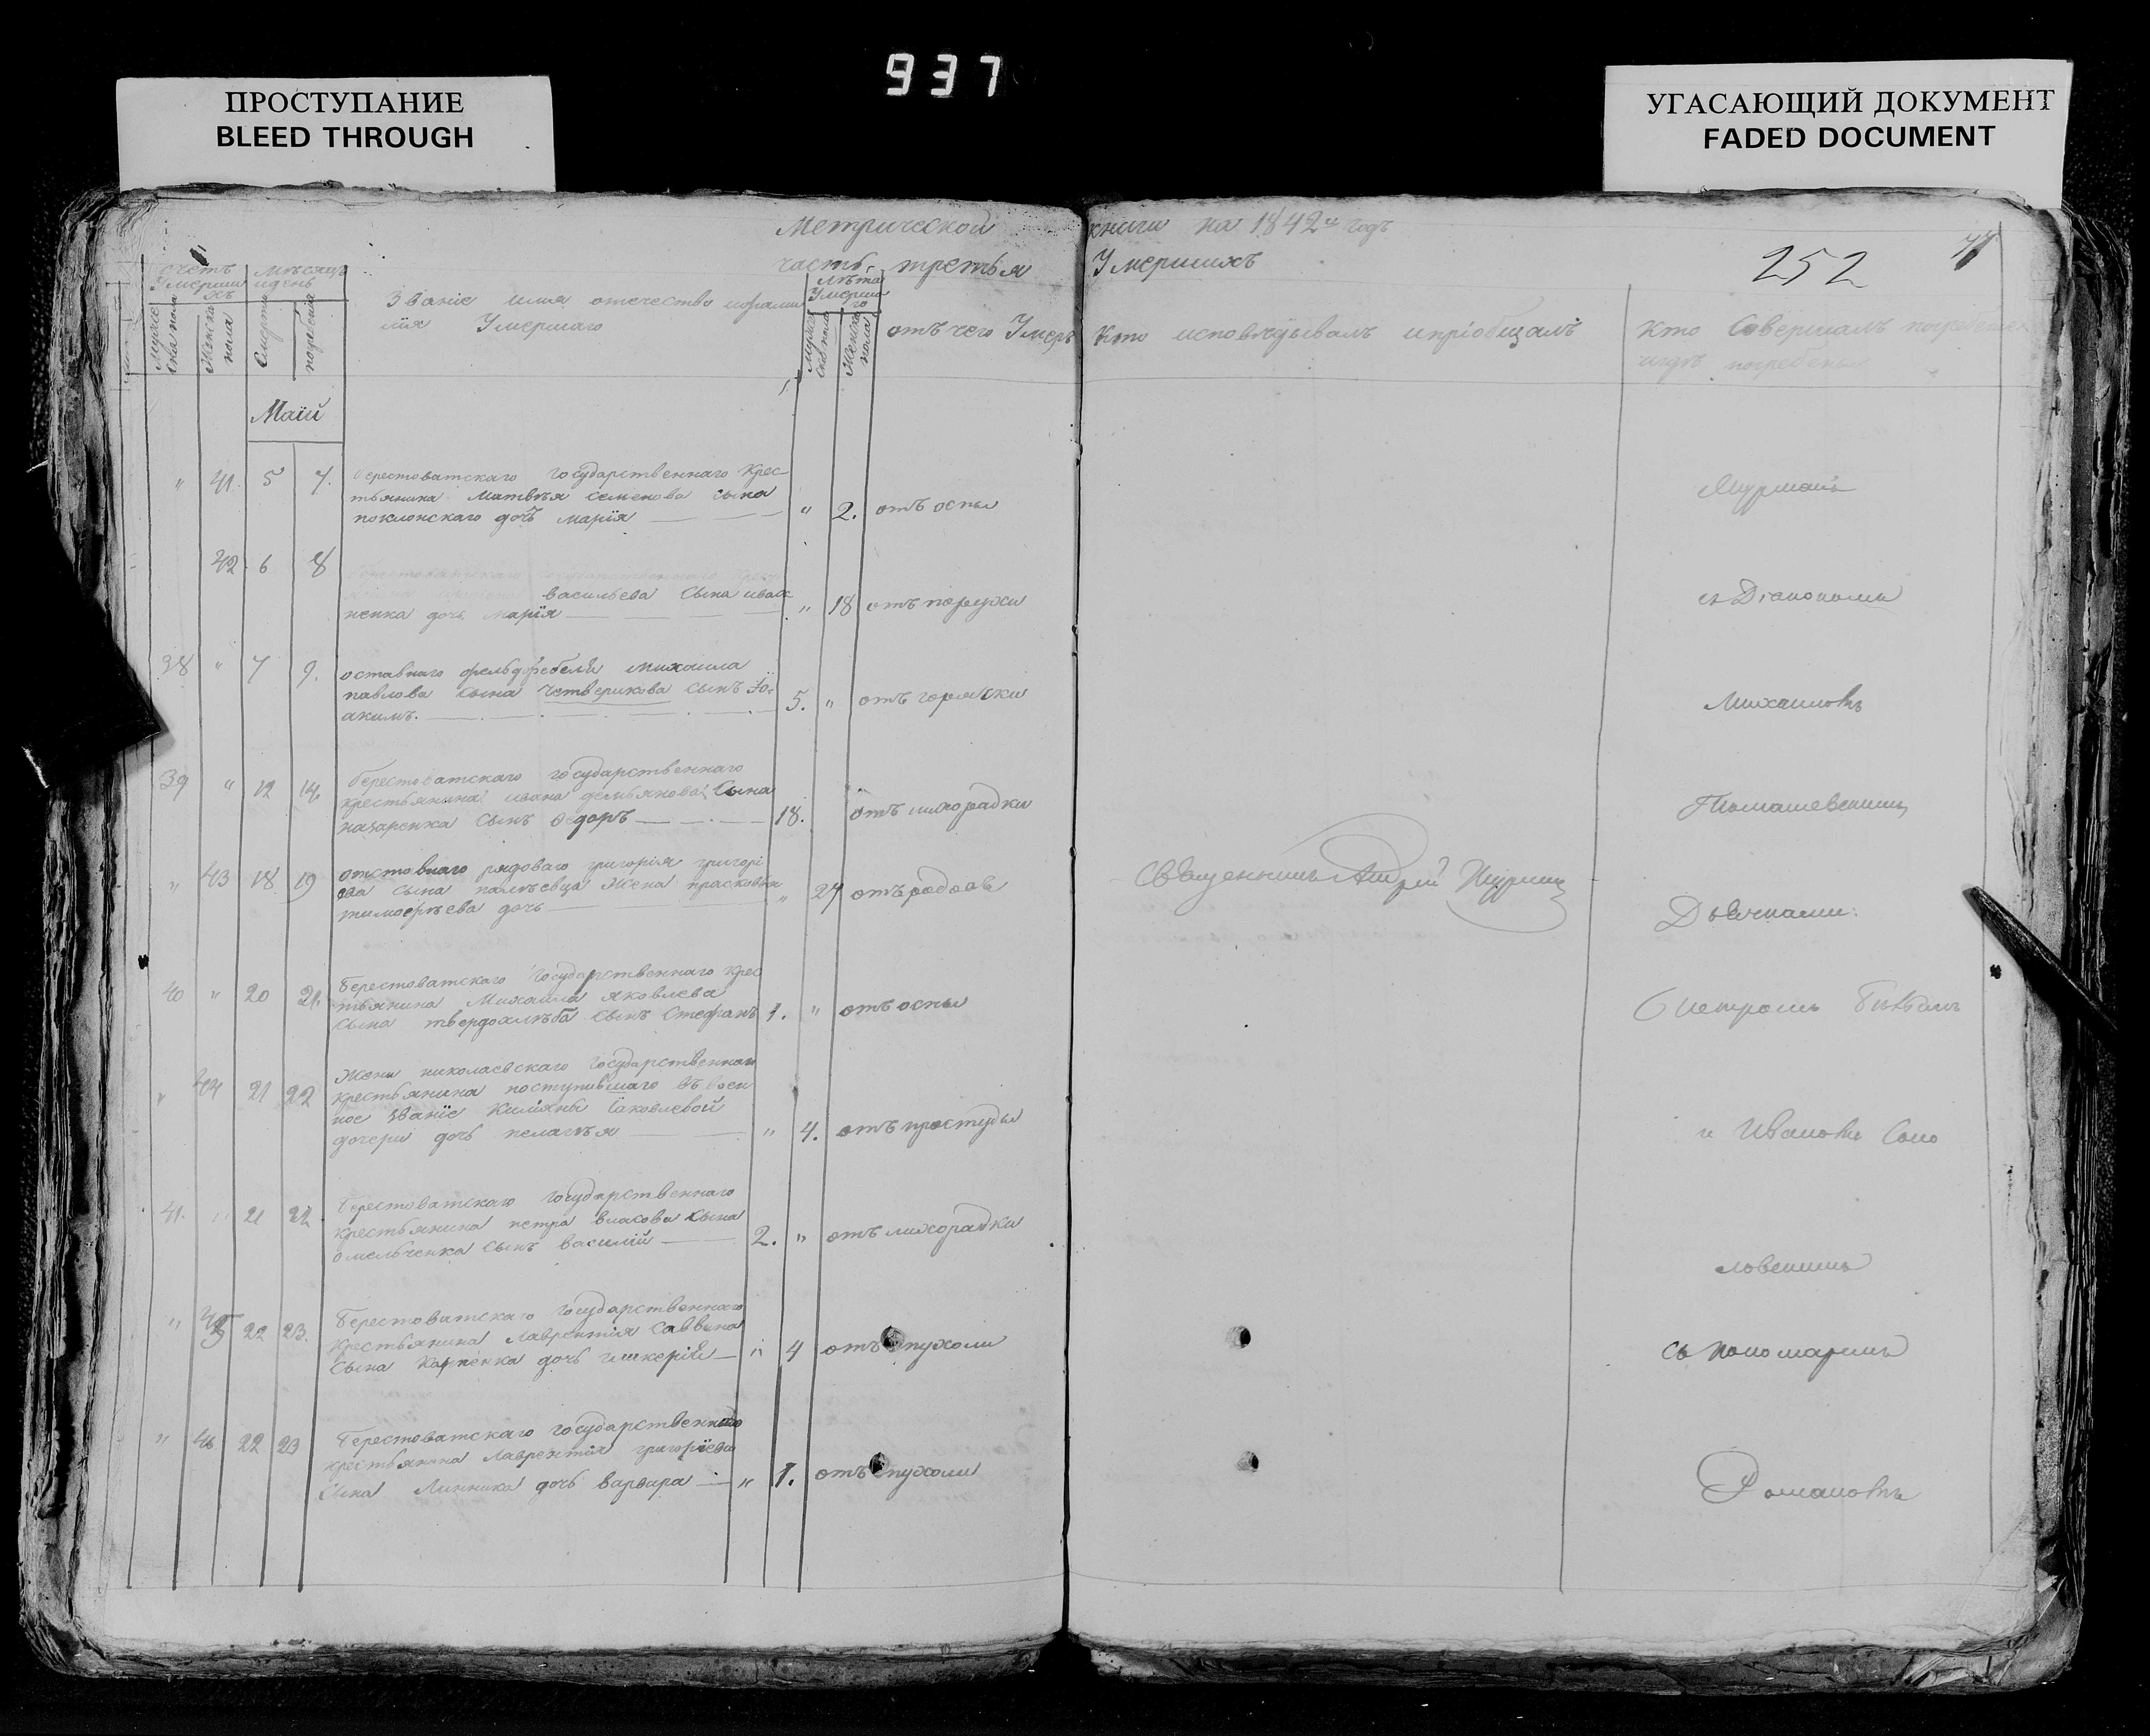 937
ПРОСТУПАНИЕ
BLEED THROUGH
УГАСАЮЩИЙ ДОКУМЕНТ
FADED DOCUMENT
Метрической книги на 1842й годъ
часть третья Умершихъ
252
77
счетъ Умершихъ
мужеска пола
Женска пола
мѣсяцъ и день
Смерти
погребенія
Званіе имя отечество и фамилія Умершаго
Лѣта Умершаго
мужеска пола
Женска пола
отъ чего Умеръ
Кто исповѣдывалъ и пріобщалъ
Кто Совершалъ погребеніе
и гдѣ погребены
Маій
" 41. 5 7. берестоватскаго государственнаго Крес
тьянина Матвѣя Семенова сына
поклонскаго дочь марїя " 2. отъ оспы
42 6 8 берестоватскаго государственнаго
васильева Сына иваш
ненка дочь марїя " 18 отъ
38 " 7 9. оставнаго фельдфебеля михаила
павлова сына Четверикова сынъ Iо
акимъ. 5. " отъ горячки
39 " 12 14. берестоватскаго государственнаго
крестьянина ивана демьянова Сына
назаренка сынъ Ѳедоръ 18. отъ лихорадки
" 43 18 19 отставнаго рядоваго григорія григорі
ева сына жена прасковья
тимоѳѣева дочь " 27 отъ родовъ
40 " 20 21. берестоватскаго государственнаго крес
тьянина Михаила яковлева
сына твердохлѣба сынъ Стефанъ 1. " отъ оспы
" 44 21 22 Жены николаевскаго государственнаго
крестьянина поступившаго въ воен
ное званїе Яковлевой
дочери дочь пелагѣя " 4. отъ простуды
41. " 21 22 берестоватскаго государственнаго
крестьянина петра власова сына
омельченка сынъ василій 2. " отъ лихорадки
" 45 22 23. берестоватскаго государственнаго
крестьянина Лаврентія Саввина
сына Карпенка дочь гликерія " 4 отъ опухоли
" 46 22 23 берестоватскаго государственнаго
крестьянина Лаврентія григорїева
сына Линника дочь варвара " 1. отъ опухоли
Священникъ Андрей
съ Діакономъ
Михаиломъ
Томашевскимъ
Дьячками:
Петромъ
и Иваномъ Соко
ловскимъ
съ пономаремъ
Романомъ